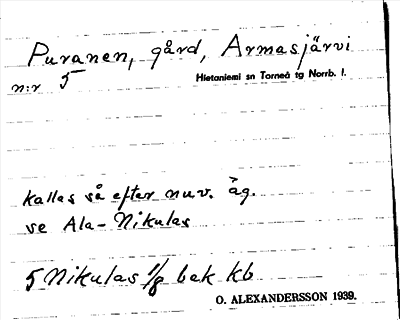 Puranen, gård, Armasjärvi
n:r 5 Hietaniemi sn Torneå tg Norrb. l.
Kallas så efter nuv. äg.
se Ala-Nikulas
5 Nikulas 1/8 bak kb
O. ALEXANDERSSON 1939.